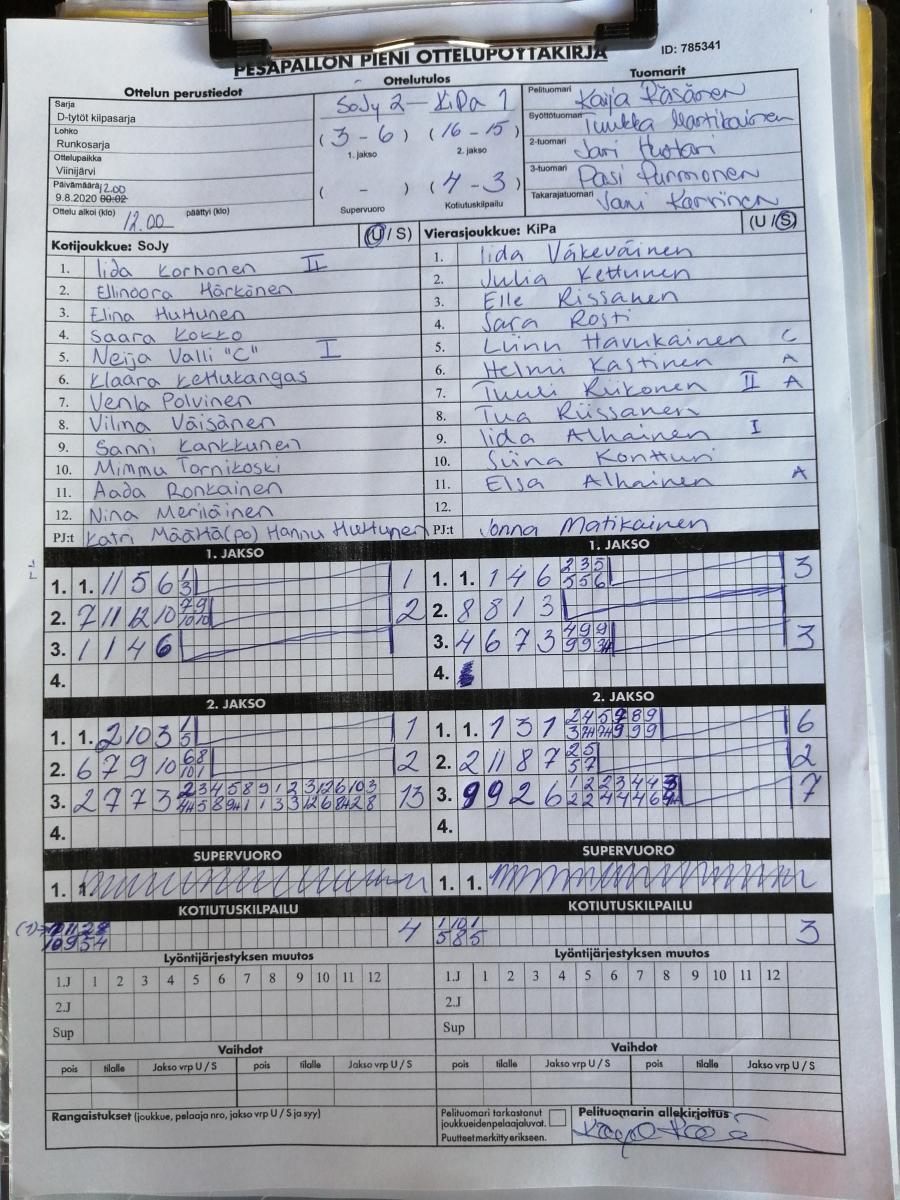 PESÄPALLON PIENI OTTELUPÖYTÄKIRJA
ID: 785341
Ottelun perustiedot
Sarja
D-tytöt kilpasarja
Lohko
Runkosarja
Ottelupaikka
Viinijärvi
Päivämäärä 12.00
9.8.2020 00:02
Ottelu alkoi (klo) 12.00 päättyi (klo)
Ottelutulos
SoJy 2 — KiPa 1
(3 - 6) (16 - 15)
1. jakso 2. jakso
( - ) (4 - 3)
Supervuoro Kotiutuskilpailu
Tuomarit
Pelituomari Kaija Räsänen
Syöttötuomari Tuukka Martikainen
2-tuomari Jari Huotari
3-tuomari Pasi Purmonen
Takarajatuomari Jani Karvinen
Kotijoukkue: SoJy (U / S)
1. Iida Korhonen II
2. Ellinoora Härkönen
3. Elina Huttunen
4. Saara Kokko
5. Neija Valli "C" I
6. Klaara Kettukangas
7. Venla Polvinen
8. Vilma Väisänen
9. Sanni Kankkunen
10. Mimmu Tornikoski
11. Aada Ronkainen
12. Nina Meriläinen
PJ:t Katri Määttä(po) Hannu Huttunen
Vierasjoukkue: KiPa (U / S)
1. Iida Väkeväinen
2. Julia Kettunen
3. Elle Rissanen
4. Sara Rosti
5. Linn Havukainen C
6. Helmi Kastinen A
7. Tuuli Riikonen II A
8. Tua Riissanen
9. Iida Alhainen I
10. Siina Kontturi
11. Elsa Alhainen A
12.
PJ:t Jonna Matikainen
1. JAKSO
1. 1. 11 5 6 1 1
3
2. 7 11 12 10 7 9 2
10 10
3. 1 1 4 6
4.
1. JAKSO
1. 1. 1 4 6 2 3 5 3
5 5 6
2. 8 8 1 3
3. 4 6 7 3 4 9 9 3
4.
2. JAKSO
1. 1. 2 10 3 1 1
5
2. 6 7 9 10 6 8 2
10 1
3. 2 7 7 3 2 3 4 5 8 9 1 2 3 12 6 10 3 13
4.
2. JAKSO
1. 1. 1 3 1 6
2. 2 11 8 7 2 5 2
5 7
3. 9 9 2 6 7
4.
SUPERVUORO
1. 1.
SUPERVUORO
1. 1.
KOTIUTUSKILPAILU
4
10 9 5 4
KOTIUTUSKILPAILU
1 10 1 3
5 8 5
Lyöntijärjestyksen muutos
1.J 1 2 3 4 5 6 7 8 9 10 11 12
2.J
Sup
Lyöntijärjestyksen muutos
1.J 1 2 3 4 5 6 7 8 9 10 11 12
2.J
Sup
Vaihdot
pois tilalle Jakso vrp U / S pois tilalle Jakso vrp U / S
Vaihdot
pois tilalle Jakso vrp U / S pois tilalle Jakso vrp U / S
Rangaistukset (joukkue, pelaaja nro, jakso vrp U / S ja syy)
Pelituomari tarkastanut
joukkueidenpelaajaluvat.
Puutteet merkitty erikseen.
Pelituomarin allekirjoitus